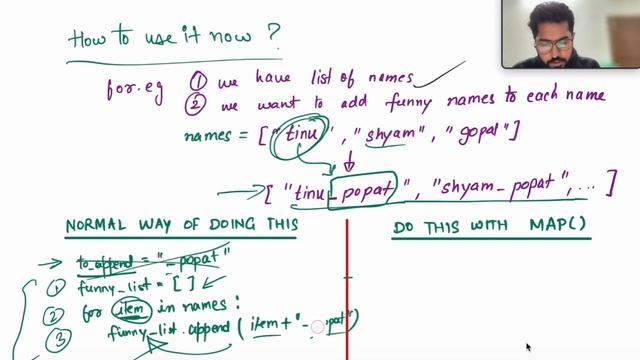 How to use it now ?
for.eg ① we have list of names
② we want to add funny names to each name
names = ["tinu", "shyam", "gopal"]
["tinu_popat", "shyam_popat", ... ]
NORMAL WAY OF DOING THIS
to_append = "_popat"
① funny_list = [ ]
② for item in names:
③ funny_list.append(item + "_popat")
DO THIS WITH MAP()